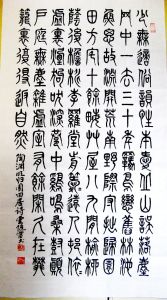 少無適俗韻性本愛丘山誤落塵
网中一去三十年羈鳥戀舊林池
魚思故淵開荒南野際守拙歸園
田方宅十餘畝草屋八九間榆柳
蔭後簷桃李羅堂前曖曖遠人村依依
墟里煙狗吠深巷中雞鳴桑樹顛
戶庭無塵雜虛室有餘閒久在樊
籠裏復得返自然
陶淵明歸園田居詩